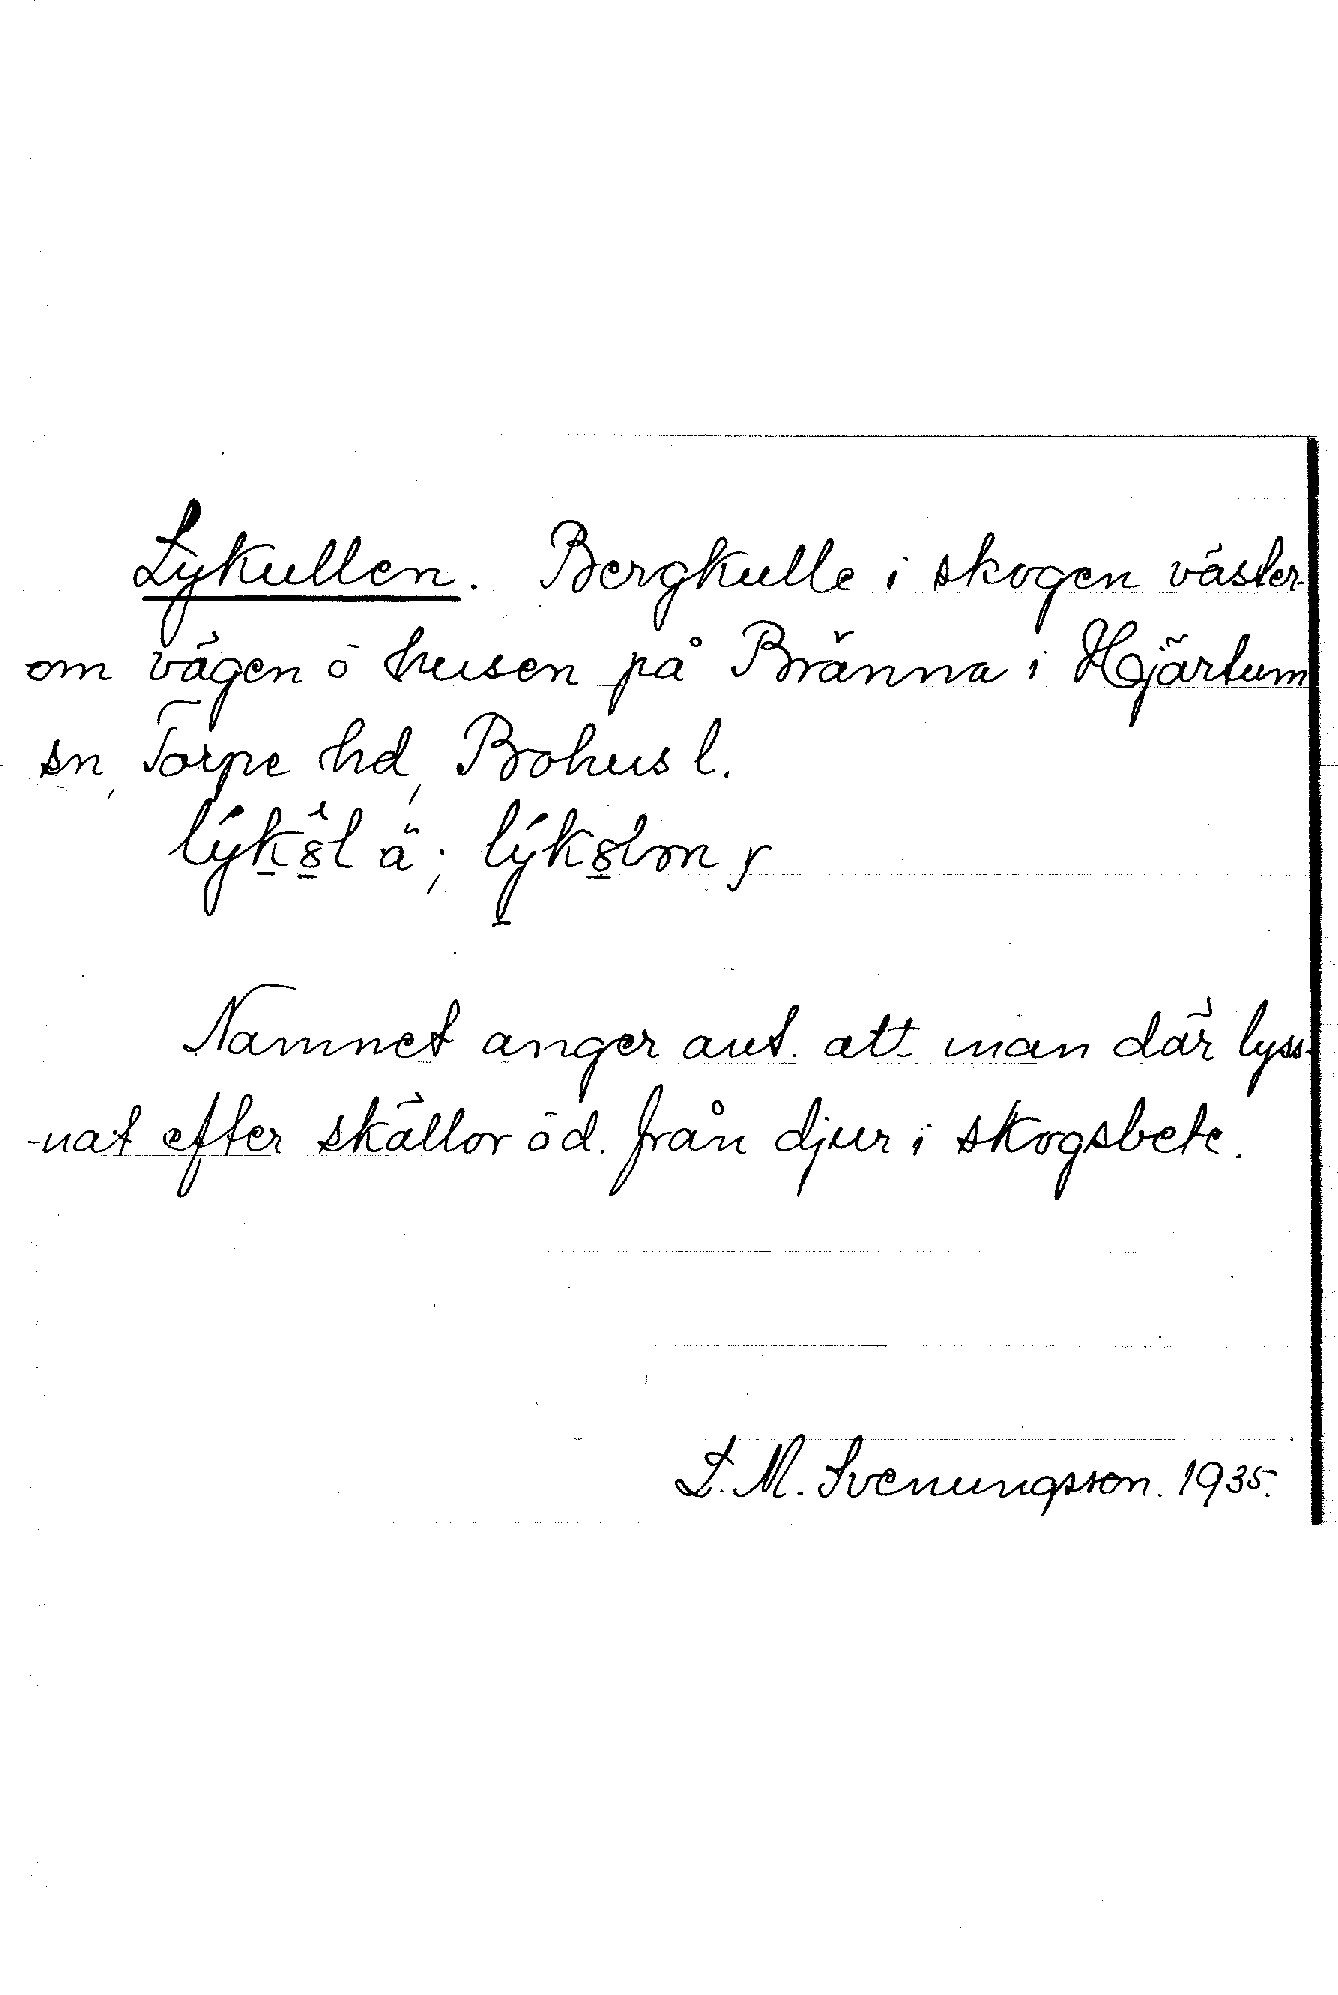 Lykullen. Bergkulle i skogen väster
om vägen ö husen på Bränna i Hjärtum
sn, Torpe hd, Bohus l.
Namnet anger ant. att man där lyss-
nat efter skällor öd. från djur i skogsbete.
L. M. Svenungsson. 1935.